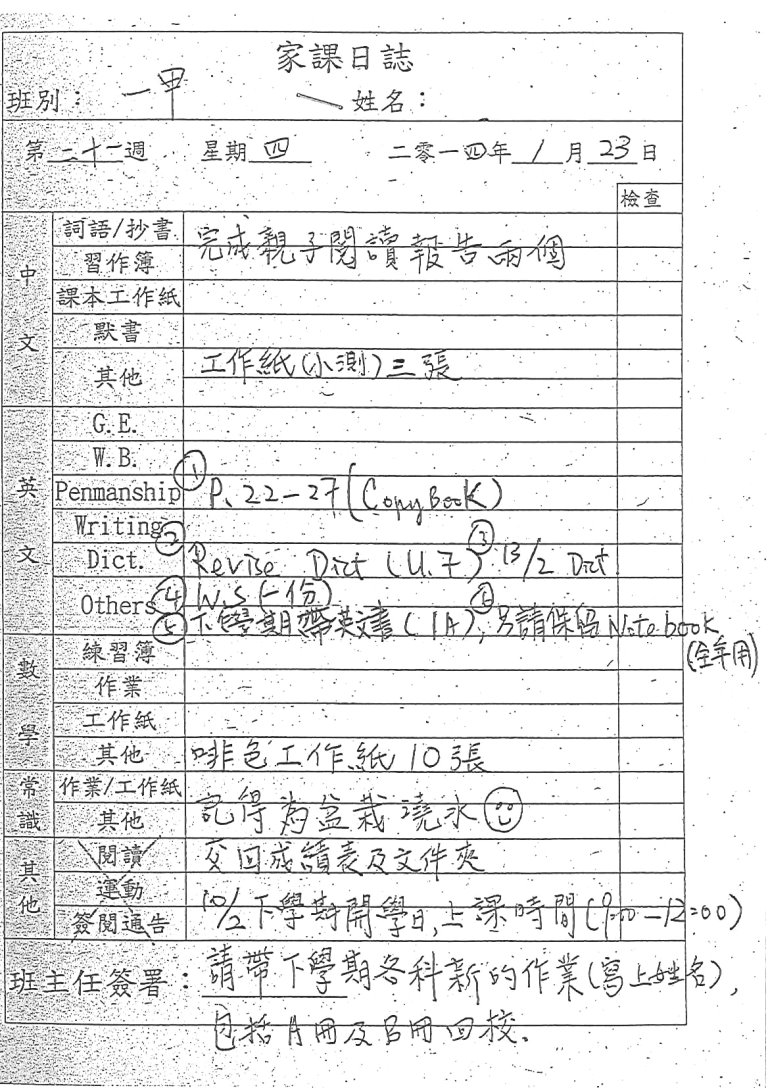 家課日誌
班別：一甲 姓名：
第二十一週 星期四 二零一四年1月23日
檢查
中文
詞語/抄書 完成親子閱讀報告兩個
習作簿
課本工作紙
默書
其他 工作紙(小測)三張
英文
G.E.
W.B.
Penmanship ① P.22-27(Copy Book)
Writing
Dict. ② Revise Dict (U.7) ③ 13/2 Dict
Others ④ W.S(一份)
⑤ 下學期帶英文書(1A), ⑥ 另請保留Notebook
(全年用)
數學
練習簿
作業
工作紙
其他 啡色工作紙10張
常識
作業/工作紙 記得為盆栽澆水
其他
其他
閱讀 交回成績表及文件夾
運動
簽閱通告 10/2下學期開學日,上課時間(9:00-12:00)
班主任簽署：請帶下學期各科新的作業(寫上姓名),
包括A冊及B冊回校.